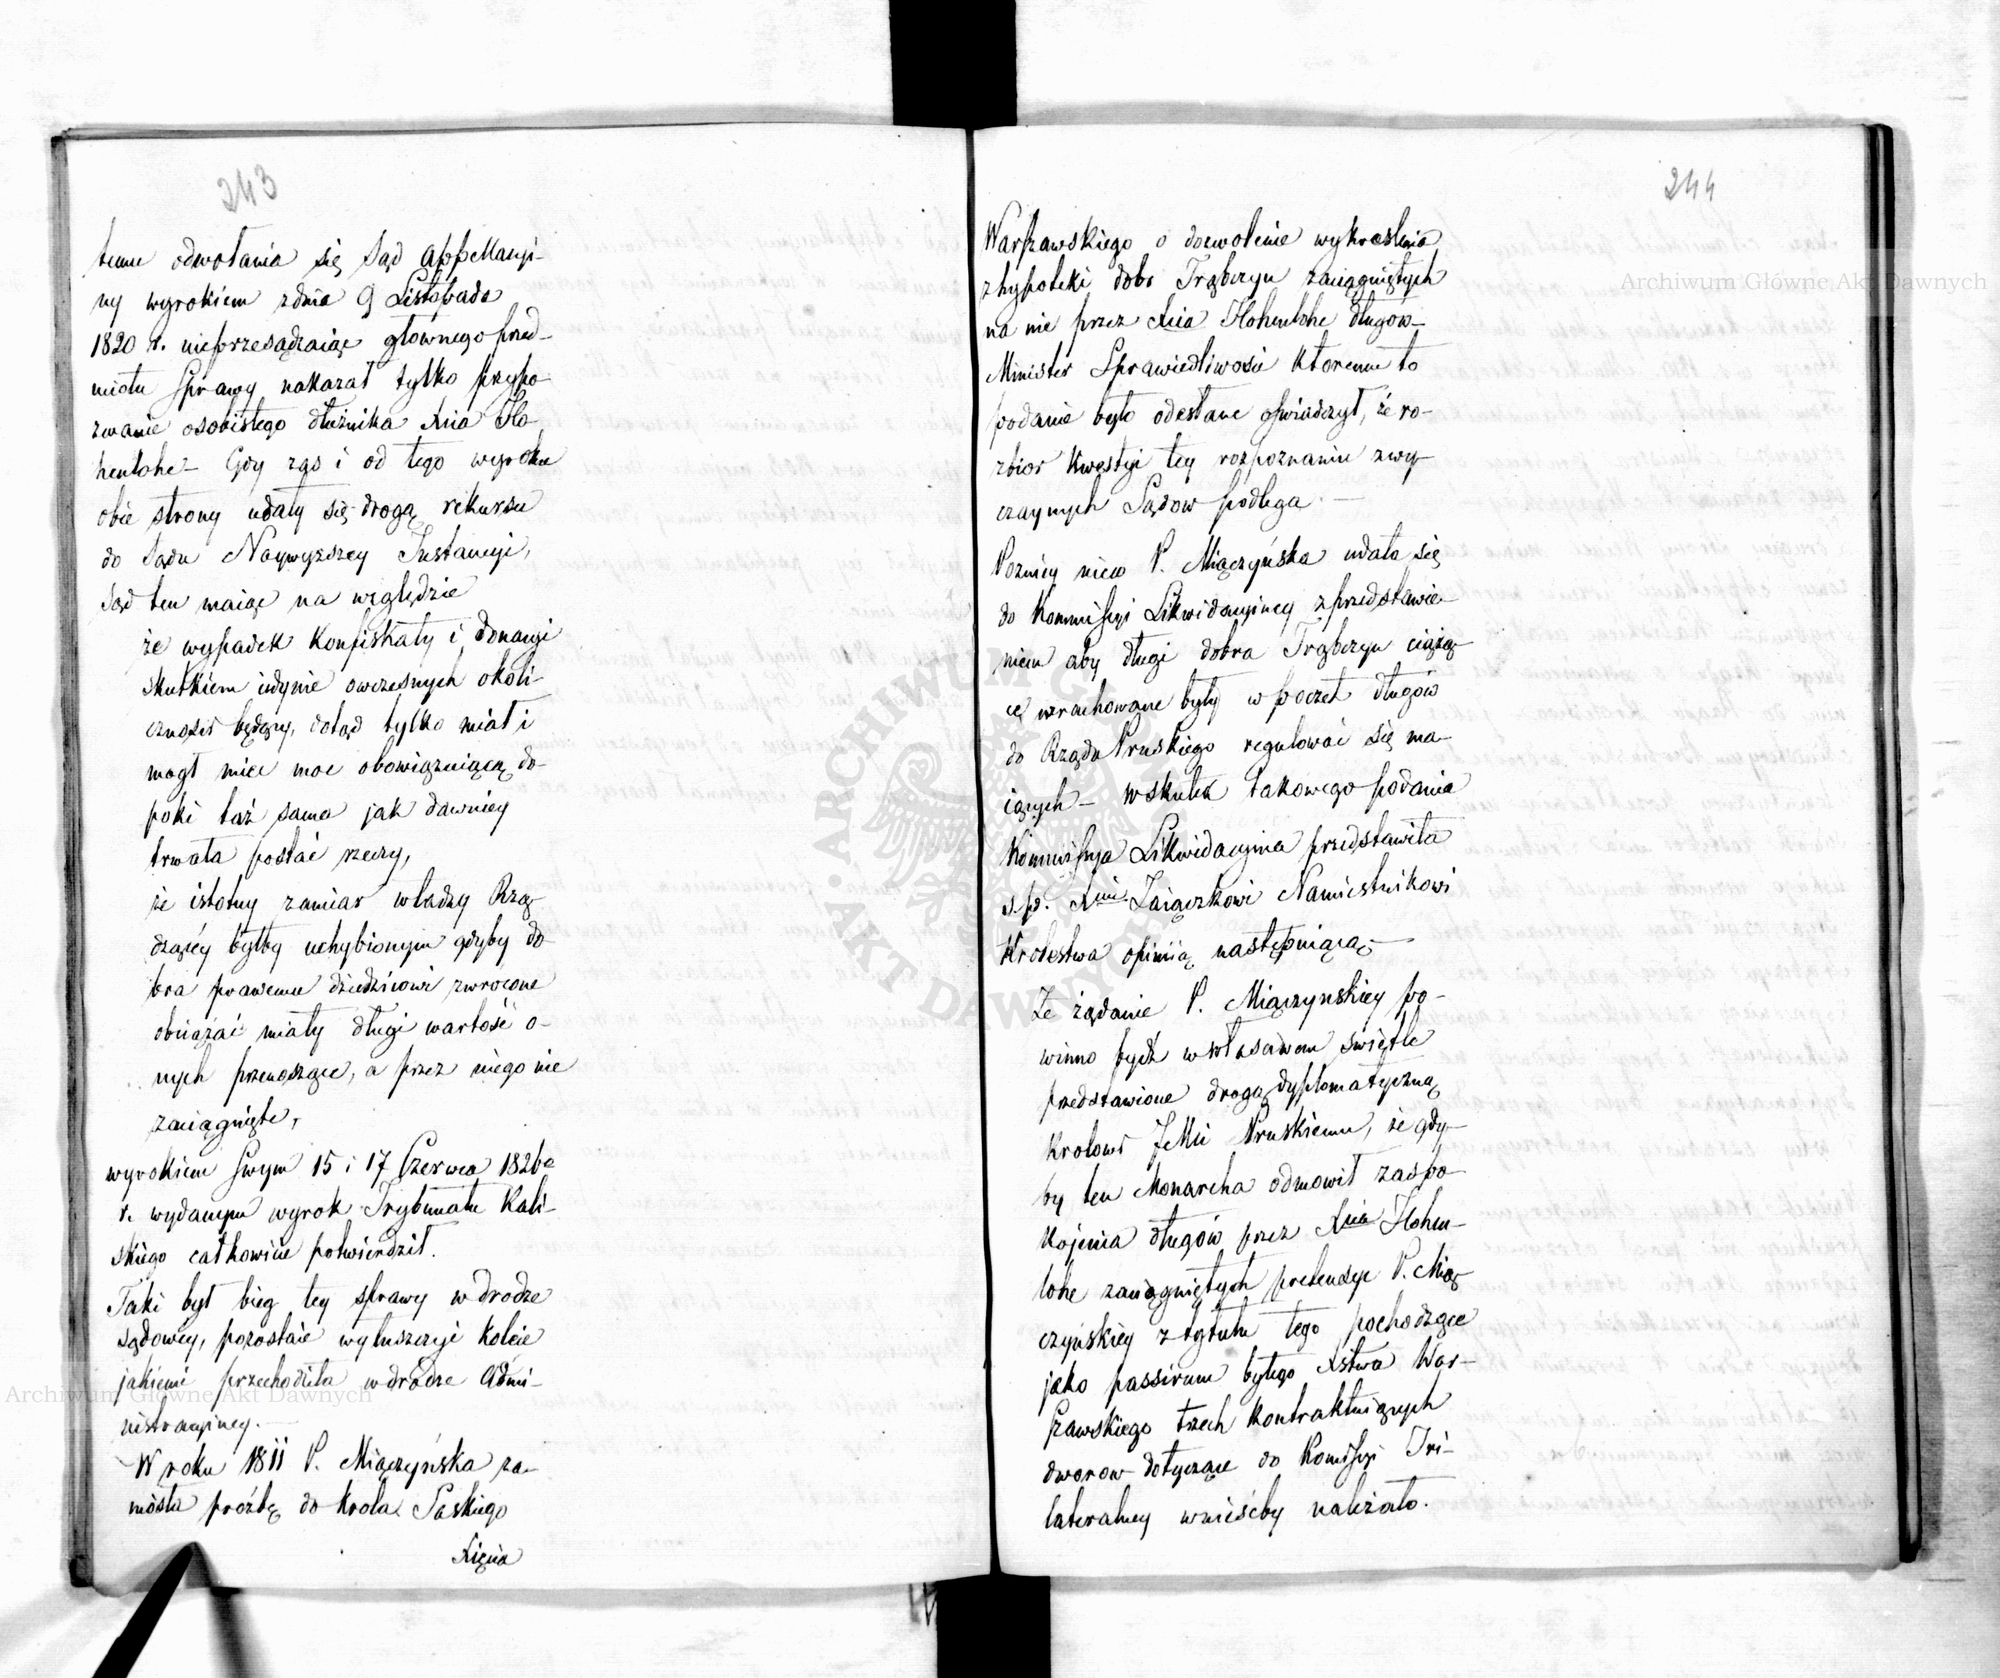 243
temu odwołania się Sąd Appellacyi-
ny wyrokiem z dnia 9 Listopada
1820 r. nieprzesądzaiąc głównego przed-
miotu sprawy nakazał tylko przypo-
zwanie osobistego dłużnika Xcia Ho-
henlohe – Gdy zaś i od tego wyroku
obie strony udały się drogą rekursu
do Sądu Naywyzszey Instancyi,
Sąd ten maiąc na względzie
że wypadek konfiskaty i donacyi
skutkiem iedynie owczesnych okoli-
czności będący, dotąd tylko miał i
mógł mieć moc obowięzuiącą do-
poki taż sama jak dawniey
trwała postać rzeczy,
że istotny zamiar władzy Rzą-
dzącéy byłby uchybionym gdyby do-
bra prawemu dziedzicowi zwrocone
obciążać miały długi wartość o-
nych przenoszące, a przez niego nie
zaciągnięte,
wyrokiem swym 15 i 17 Czerwca 1826
r. wydanym wyrok Trybunału Kali-
skiego całkowicie potwierdził.
Taki był bieg tey sprawy w drodze
sądowey, pozostaie wyłuszczyć koleie
jakiemi przechodziła w drodze Admi-
nistracyiney. –
W roku 1811 P. Miączyńska za-
niosła proźbę do Krola Saskiego
Xięcia
244
Warszawskiego o dozwolenie wykreślenia
z hypoteki dobr Trąbczyn zaciągniętych
na nie przez Xcia Hohenlohe długow –
Minister Sprawiedliwości któremu to
podanie było odesłane oświadczył, że ro-
zbior kwestyi tey rozpoznaniu zwy-
czaynych Sądow podlega. –
Pozniey nieco P. Miączyńska udała się
do Kommissyi Likwidacyiney z przedstawie-
niem aby długi dobra Trąbczyn ciążą-
ce wrachowane były w poczet długów
do Rządu Pruskiego regulować się ma-
iących – W skutek takowego podania
Kommissya Likwidacyina przedstawiła
ś. p. Xciu Zaiączkowi Namiestnikowi
Krolestwa opiniią następuiącą –
Że żądanie P. Miączynskiey po-
winno bydź w właściwem świetle
przedstawione drogą dyplomatyczną
Krolowi JMci Pruskiemu, że gdy-
by ten Monarcha odmowił zaspo-
kojenia długów przez Xcia Hohen-
lohe zaciągniętych pretensye P. Mią-
czyńskiey z tytułu tego pochodzące
jako passivum byłego Xstwa War-
szawskiego trzech kontraktuiących
dworow dotyczące do Komissyi Tri-
lateralney wnieśćby należało.
Archiwum Główne Akt Dawnych
Archiwum Główne Akt Dawnych
ARCHIWUM GŁÓWNE AKT DAWNYCH